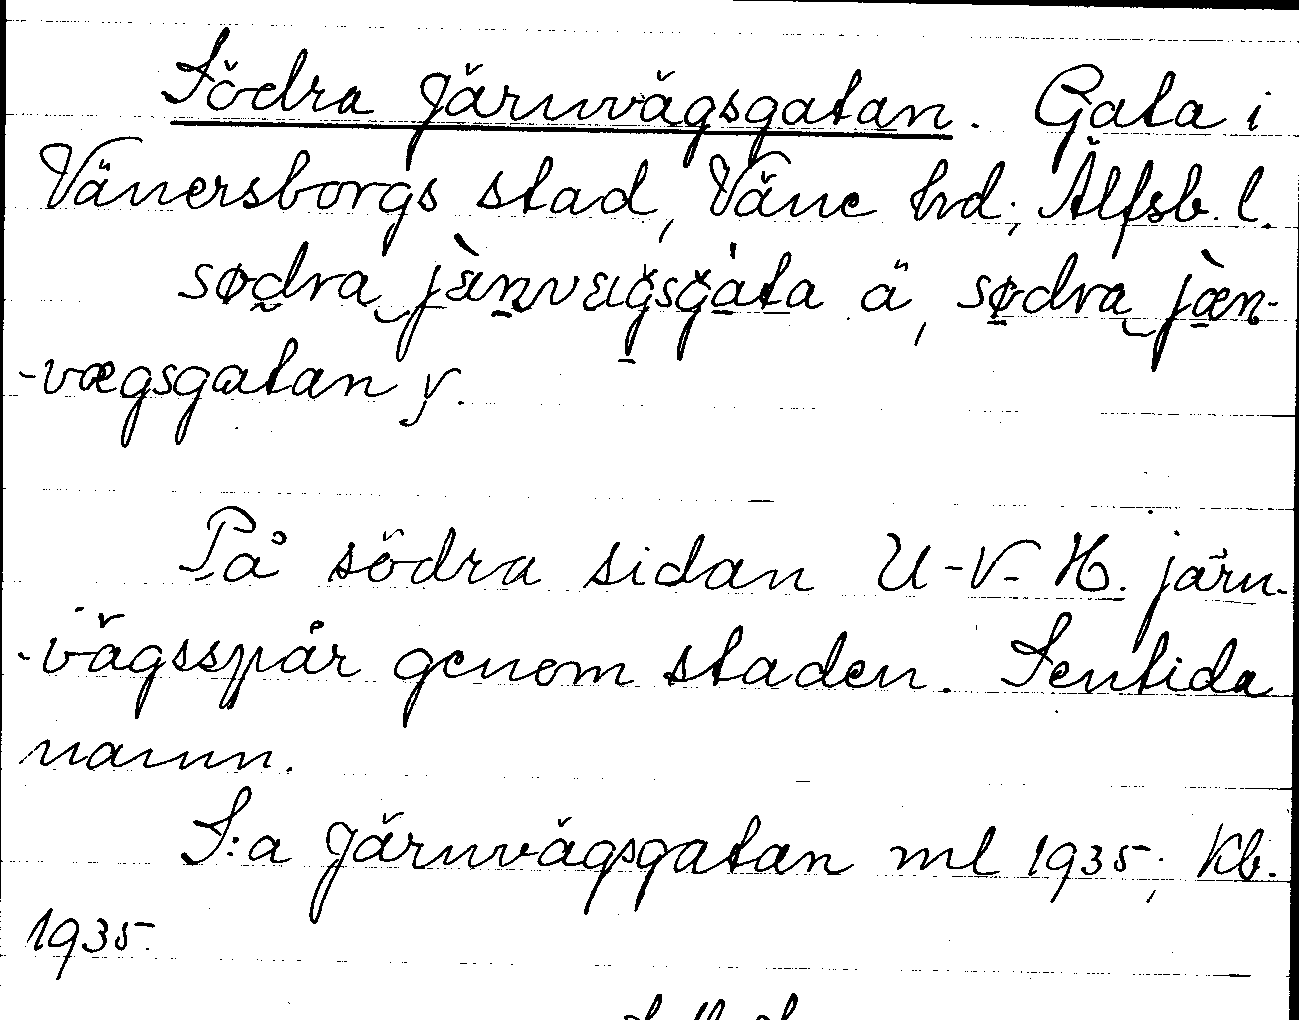 Södra Järnvägsgatan. Gata i
Vänersborgs stad, Väne hd; Älfsb. l.
södra jä̀nvägsgata ä, södra jæ̀n-
-vægsgatan y.
På södra sidan U-V-H. järn-
-vägsspår genom staden. Sentida
namn.
S:a Järnvägsgatan ml 1935; Kb.
1935.